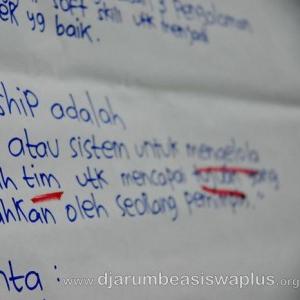 soft skill utk menjadi
ER yg baik.
ship adalah
atau sistem untuk mengelola
ah tim utk mencapai tujuan yang
ahkan oleh seorang pemimpin."
nta :
www.djarumbeasiswaplus.org